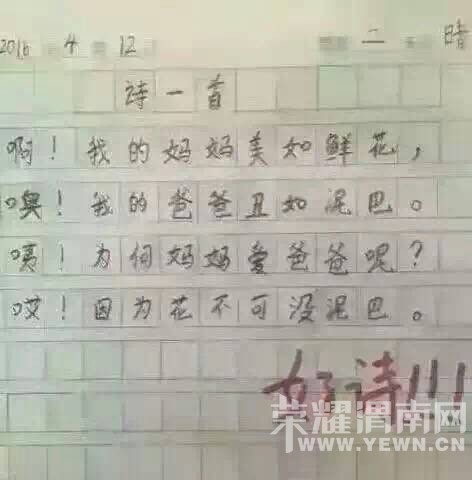 2016 4 12 二 晴
诗一首
啊！我的妈妈美如鲜花，
噢！我的爸爸丑如泥巴。
咦！为何妈妈爱爸爸呢？
哎！因为花不可没泥巴。
好诗!!!
荣耀渭南网
WWW.YEWN.CN